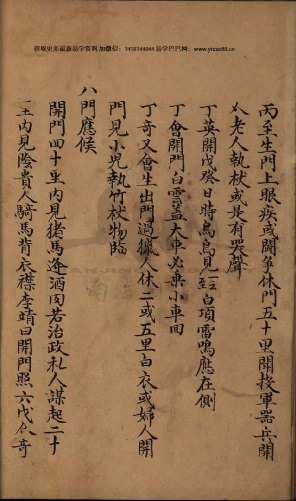 获取更多最新易学资料 加微信：3458344044 易学巴巴网：www.yixue88.cn
丙至生門上眼疾或鬪爭休門五十里開投軍器兵開
老人執杖或是有哭聲
丁英開戊癸日時鳥鳥見
白項雷鳴應在側
丁會開門白雲蓋大車必乘小車回
丁奇又會生出門過獵人休二或五里白衣或婦人開
門見小児執竹杖物臨
八門應候
開門四十里內見猪馬逢酒肉若治政私人謀起二十
里內見陰貴人騎馬背衣襟李靖曰開門照六戊合奇